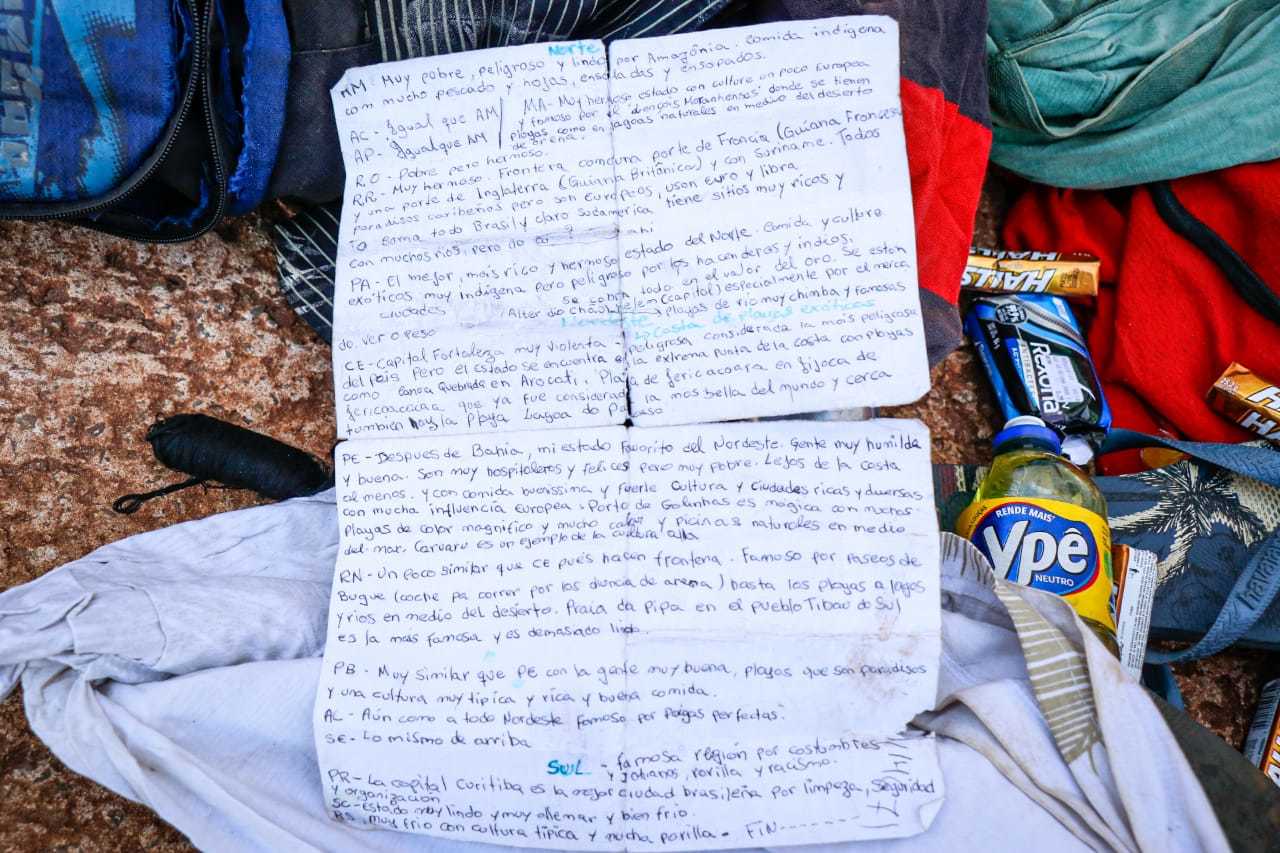 Norte
AM Muy pobre, peligroso y lindo por Amazônia. Comida indígena
com mucho pescado y hojas, ensaladas y ensopados.
AC - Igual que AM
AP - Igual que AM
MA - Muy hermoso estado con culture un poco Europea
y famoso por el "Lençois Maranhenses" donde se tienen
playas como en lagoas naturales en medio del desierto
de arena.
RO - Pobre pero hermoso.
RR - Muy hermoso. Frontera com una parte de Francia (Guiana Francesa)
y una parte de Inglaterra (Guiana Britânica) y con Suriname. Todos
paradisos caribeños pero son Europeos, uson euro y libra.
TO Borna todo Brasil y claro Sudamerica tiene sitios muy ricos y
con muchos rios, pero do ahi
PA - El mejor, mais rico y hermoso estado del Norte. Comida y culture
exóticas muy Indígena pero peligroso por los hacenderos y indios.
ciudades se cobra todo en el valor del oro. Se estan
Alter do Chao Belem (capital) especialmente por el merca
do. ver o peso playas de rio muy chimba y famosas
Nordeste
costa de playas exóticas
CE - Capital Fortaleza muy violenta peligrosa considerada la mais peligrosa
del pais pero el estado se encuentra a la extrema punta de la costa con playas
como Canoa Quebrada en Aracati. Playa de Jericoacoara en Jijoca de
Jericoacoara que ya fue considerada la mas bella del mundo y cerca
tambien hay la Playa Lagoa do Paraiso
PE - Despues de Bahia, mi estado favorito del Nordeste. Gente muy humilda
y buena. Son muy hospitaleros y felices pero muy pobre. Lejos de la costa
al menos. y con comida buenissima y fuerte cultura y ciudades ricas y diversas
con mucha influencia europea. Porto de Galinhas es magica con muchas
Playas de color magnifico y mucho calor y picinas naturales en medio
del mar. Caruaru es un ejemplo de la cultura alla
RN - Un poco similar que CE pues hacen frontera. Famoso por paseos de
Bugue (coche pa correr por los duncia de arena) hasta las playas a lagos
y rios en medio del desierto. Praia da Pipa en el pueblo Tibau do Sul
es la mas famosa y es demasiado lindo.
PB - Muy similar que PE con la gente muy buena, playas que son paradisos
y una cultura muy tipica y rica y buena comida.
AL - Aún como a todo Nordeste famoso por Paigas perfectas.
SE - Lo mismo de arriba
SUL - famosa región por costumbres
y italianos, parilla y racismo.
PR - La capital Curitiba es la mejor ciudad brasileña por limpeza, seguridad
y organización
SC - Estado muy lindo y muy allemar y bien frio.
RS, muy frio con cultura típica y mucha parilla. FIN
HALLS
HALLS
Rexona
ANTIBACTERIAL
RENDE MAIS
Ypê
NEUTRO
havaianas